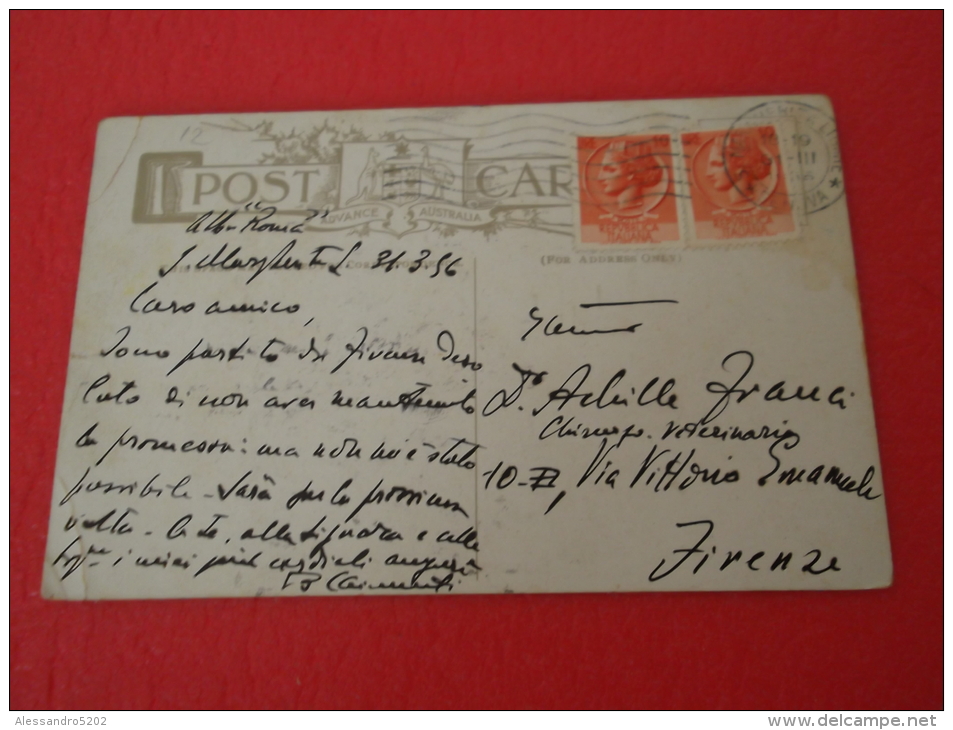 12
POST CARD
ADVANCE AUSTRALIA
(FOR ADDRESS ONLY)
REPUBBLICA ITALIANA
REPUBBLICA ITALIANA
Alb. "Roma"
S. Margherita L 31.3.56
Caro amico,
Sono partito da Firenze deso
lato di non aver mantenuto
la promessa: ma non mi è stato
possibile. Sarà per la prossima
volta. A te, alla Signora e alle
i miei più cordiali auguri
Dr. Achille Franci
Chirurgo-veterinario
10-II, Via Vittorio Emanuele
Firenze
Alessandro5202
www.delcampe.net